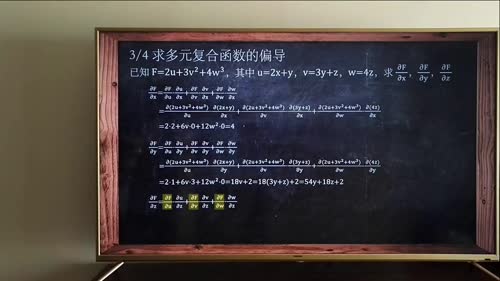 3/4 求多元复合函数的偏导
已知 F=2u+3v²+4w³，其中 u=2x+y，v=3y+z，w=4z，求 ∂F/∂x，∂F/∂y，∂F/∂z
∂F/∂x=∂F/∂u ∂u/∂x+∂F/∂v ∂v/∂x+∂F/∂w ∂w/∂x
=∂(2u+3v²+4w³)/∂u·∂(2x+y)/∂x+∂(2u+3v²+4w³)/∂v·∂(3y+z)/∂x+∂(2u+3v²+4w³)/∂w·∂(4z)/∂x
=2·2+6v·0+12w²·0=4
∂F/∂y=∂F/∂u ∂u/∂y+∂F/∂v ∂v/∂y+∂F/∂w ∂w/∂y
=∂(2u+3v²+4w³)/∂u·∂(2x+y)/∂y+∂(2u+3v²+4w³)/∂v·∂(3y+z)/∂y+∂(2u+3v²+4w³)/∂w·∂(4z)/∂y
=2·1+6v·3+12w²·0=18v+2=18(3y+z)+2=54y+18z+2
∂F/∂z=∂F/∂u ∂u/∂z+∂F/∂v ∂v/∂z+∂F/∂w ∂w/∂z